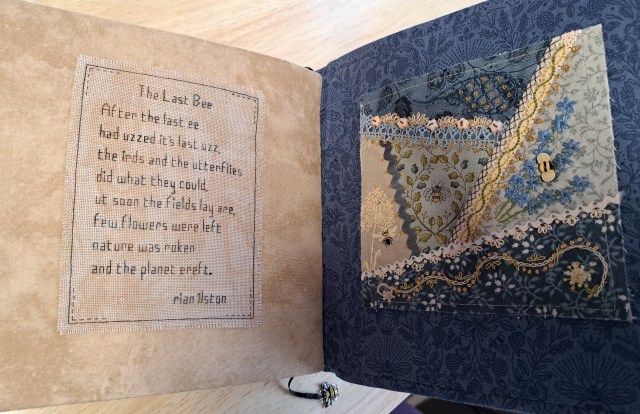 The Last Bee
After the last ee
had uzzed it's last uzz,
the irds and the utterflies
did what they could,
ut soon the fields lay are,
few flowers were left
nature was roken
and the planet ereft.
rian Ilston